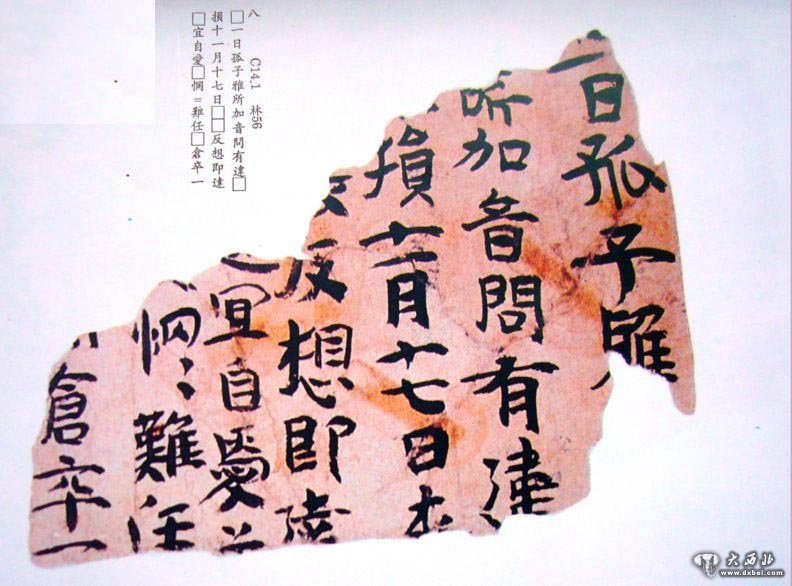 八　C14.1　林56
□一日孤子雅所加音問有違□
損十一月十七日□□反想即達
□宜自愛□惘＝難任□倉卒一
一日孤子雅
所加音問有違
損十一月十七日
反想即達
宜自愛
惘〻難任
倉卒一
大西北
www.dxbei.com